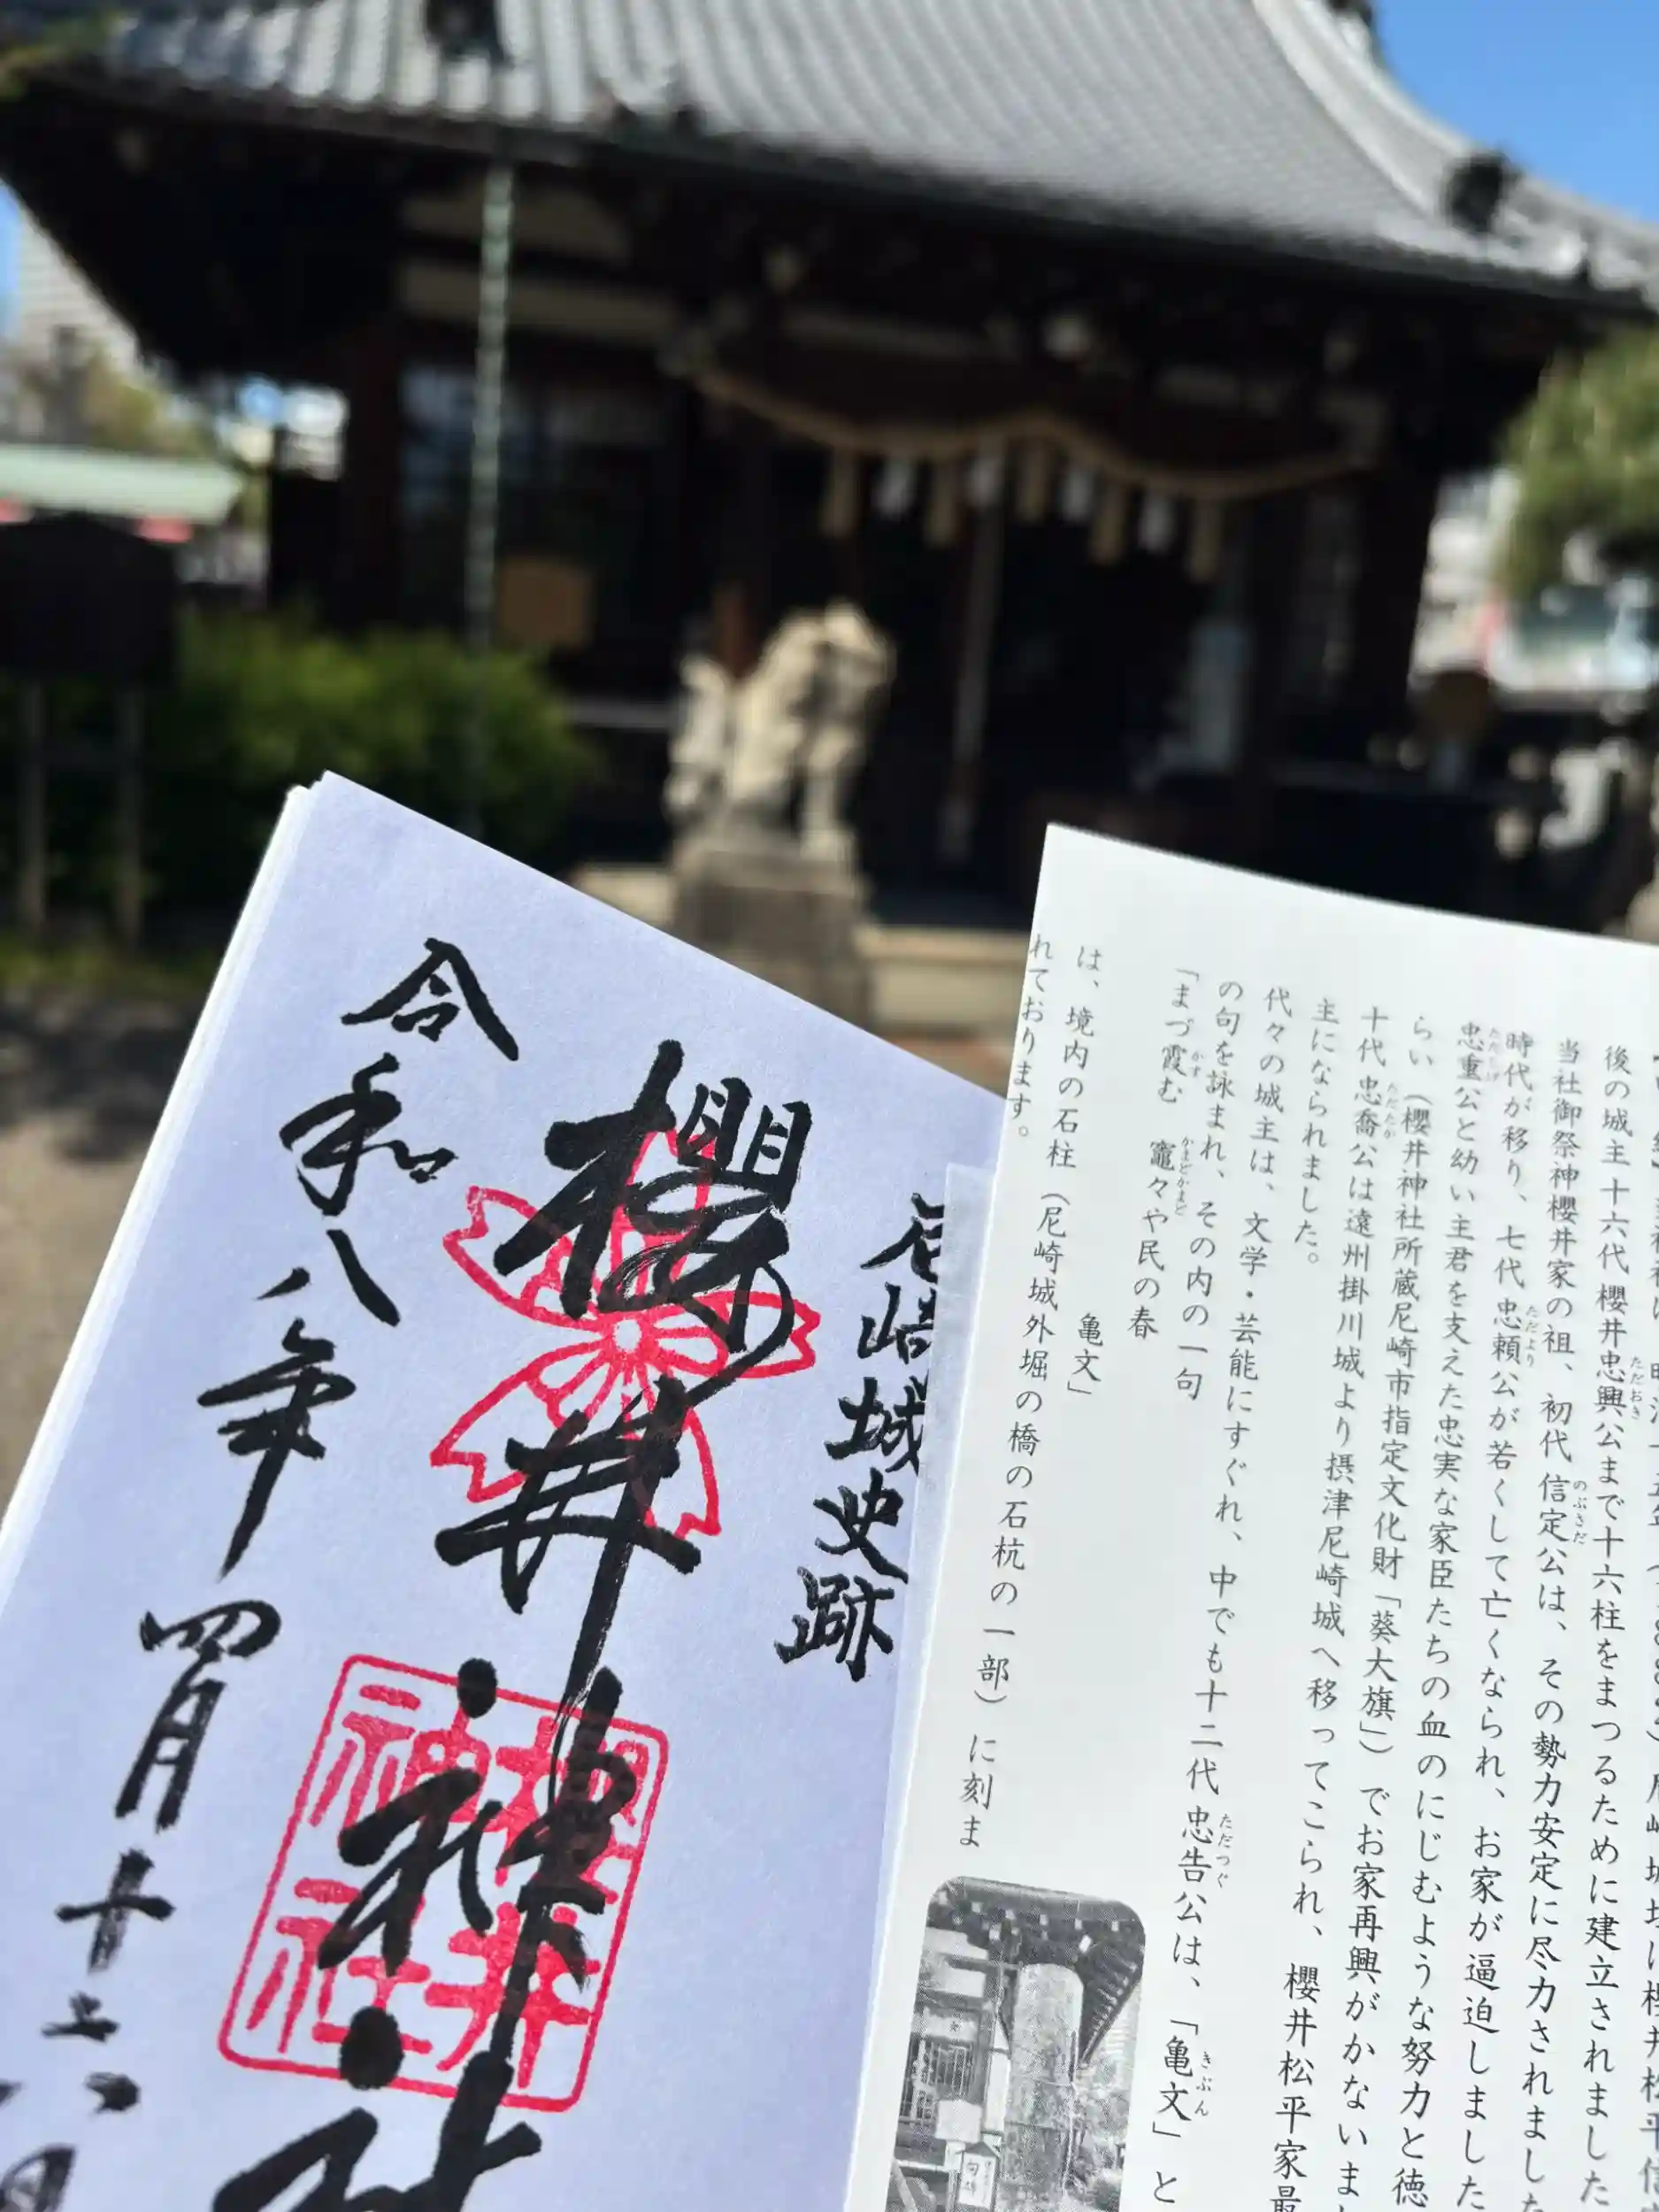 尼崎城史跡
櫻井神社
櫻井
神社
令和八年四月十六日
後の城主十六代櫻井忠興公まで十六柱をまつるために建立されました
ただおき
当社御祭神櫻井家の祖、初代信定公は、その勢力安定に尽力されました
のぶさだ
時代が移り、七代忠頼公が若くして亡くなられ、お家が逼迫しました
ただより
忠重公と幼い主君を支えた忠実な家臣たちの血のにじむような努力と徳
ただしげ
らい(櫻井神社所蔵尼崎市指定文化財「葵大旗」)でお家再興がかない
十代忠喬公は遠州掛川城より摂津尼崎城へ移ってこられ、櫻井松平家最
ただたか
主になられました。
代々の城主は、文学・芸能にすぐれ、中でも十二代忠告公は、「亀文」と
ただつぐ
きぶん
の句を詠まれ、その内の一句
「まづ霞む 竈々や民の春
かす
かまどかまど
亀文」
は、境内の石柱(尼崎城外堀の橋の石杭の一部)に刻ま
れております。